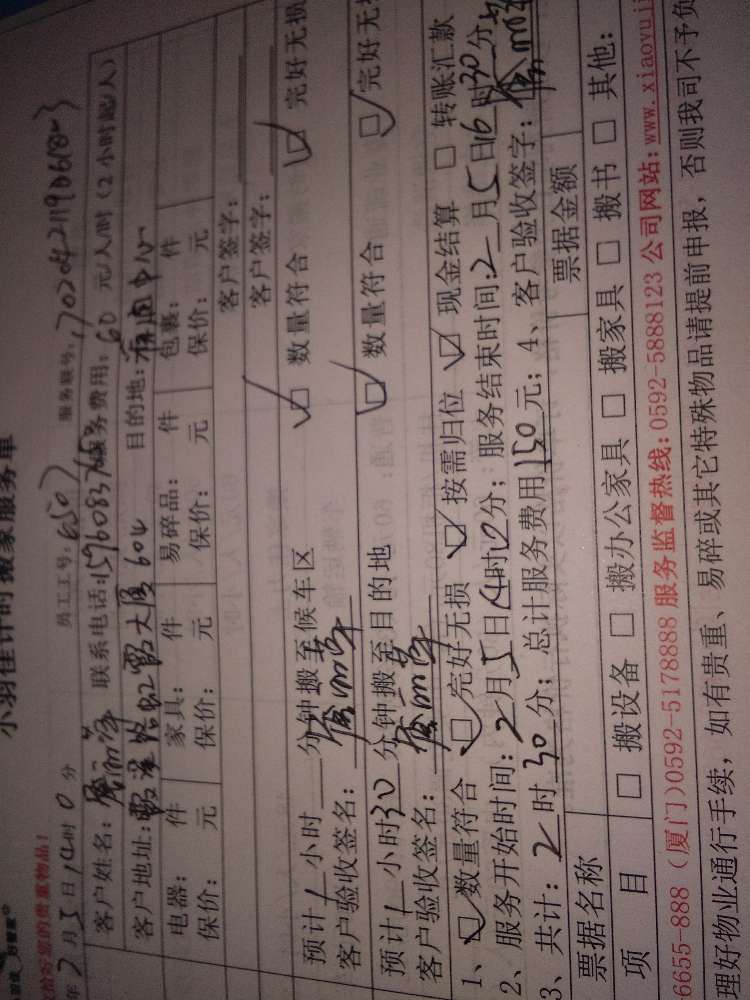 小羽佳计时搬家服务单
好您的贵重物品!
年2月5日14时0分 员工工号: 6507 服务联号:
客户姓名: 联系电话: 服务费用: 60 元/人/时 (2小时起/人)
客户地址: 大厦604 目的地: 中心
电器: 件 家具: 件 易碎品: 件 包裹: 件
保价: 元 保价: 元 保价: 元 保价: 元
客户签字:
客户签字:
预计1小时 分钟搬至候车区 数量符合 完好无损
客户验收签名:
预计1小时30分钟搬至目的地 数量符合 完好无损
客户验收签名:
1、 数量符合 完好无损 按需归位 现金结算 转账汇款
2、服务开始时间:2月5日14时0分; 服务结束时间:2月5日16时30分
3、共计: 2时30分; 总计服务费用150元; 4、客户验收签字:
票据名称 票据金额
项目 搬设备 搬办公家具 搬家具 搬书 其他:
6655-888 (厦门)0592-5178888 服务监督热线: 0592-5888123 公司网站: www.xiaoyuji
理好物业通行手续, 如有贵重、易碎或其它特殊物品请提前申报, 否则我司不予负